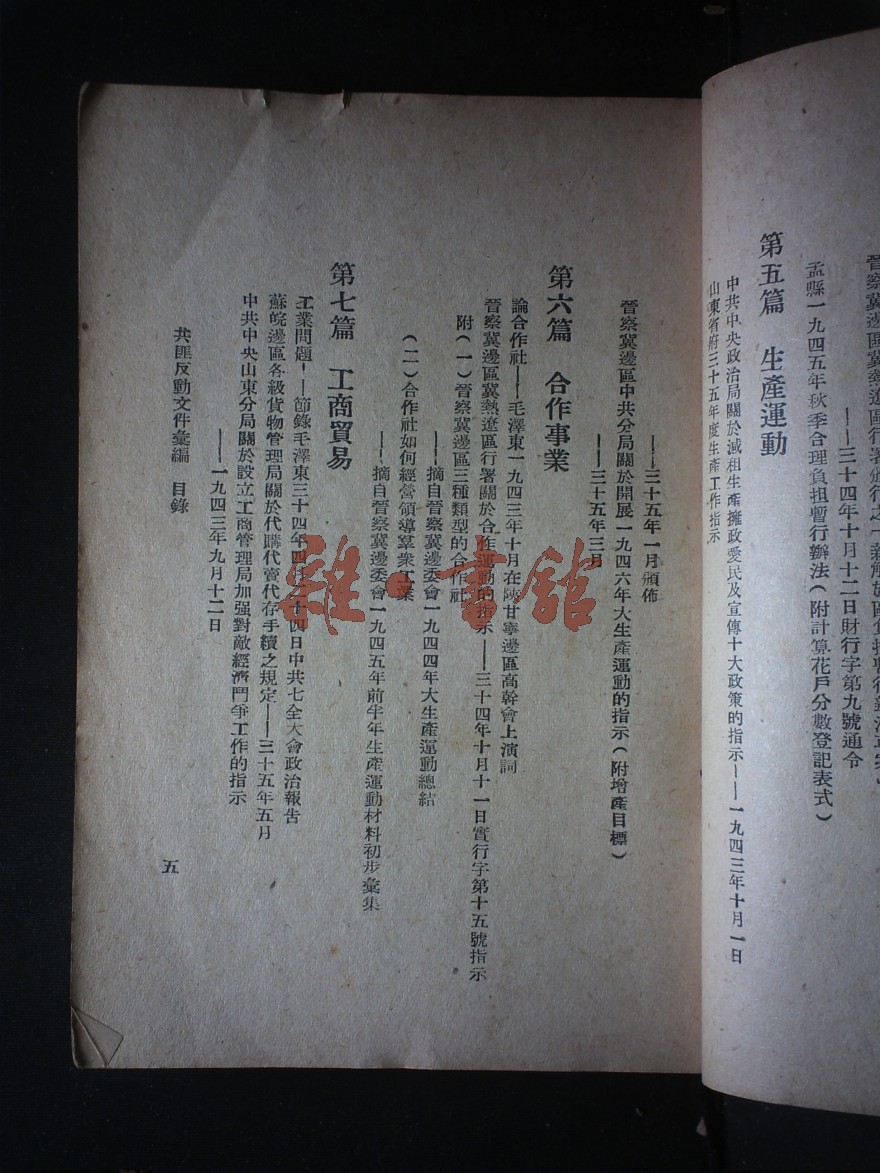 晉察冀邊區冀熱遼區行署頒行之
——三十四年十月十二日財行字第九號通令
孟縣一九四五年秋季合理負担暫行辦法(附計算花戶分數登記表式)
第五篇 生產運動
中共中央政治局關於減租生產擁政愛民及宣傳十大政策的指示——一九四三年十月一日
山東省府三十五年度生產工作指示
——三十五年一月頒佈
晉察冀邊區中共分局關於開展一九四六年大生產運動的指示(附增產目標)
——三十五年三月
第六篇 合作事業
論合作社——毛澤東一九四三年十月在陝甘寧邊區高幹會上演詞
晉察冀邊區冀熱遼區行署關於合作運動的指示——三十四年十月十一日實行字第十五號指示
附(一)晉察冀邊區三種類型的合作社
——摘自晉察冀邊委會一九四四年大生產運動總結
(二)合作社如何經營領導羣衆工業
——摘自晉察冀邊委會一九四五年前半年生產運動材料初步彙集
第七篇 工商貿易
工業問題——節錄毛澤東三十四年四月二十四日中共七全大會政治報告
蘇皖邊區各級貨物管理局關於代購代賣代存手續之規定——三十五年五月
中共中央山東分局關於設立工商管理局加强對敵經濟鬥爭工作的指示
——一九四三年九月十二日
共匪反動文件彙編 目錄
五
雜·書館